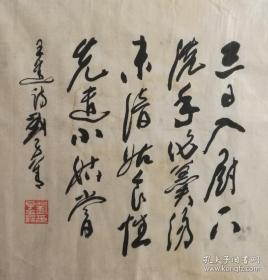 三日入厨下
洗手作羹汤
未谙姑食性
先遣小姑尝
王建诗
孔夫子旧书网